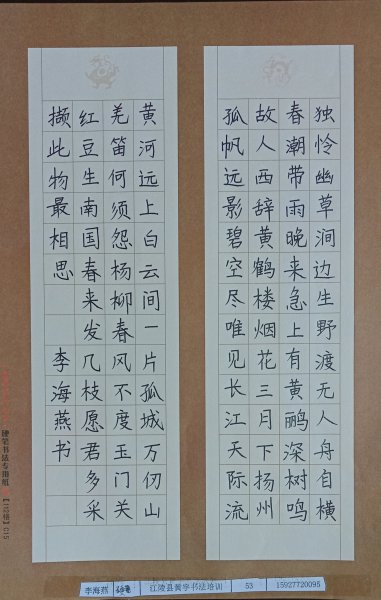 独怜幽草涧边生野渡无人舟自横
春潮带雨晚来急上有黄鹂深树鸣
故人西辞黄鹤楼烟花三月下扬州
孤帆远影碧空尽唯见长江天际流
黄河远上白云间一片孤城万仞山
羌笛何须怨杨柳春风不度玉门关
红豆生南国春来发几枝愿君多采
撷此物最相思 李海燕书
硬笔书法专用纸 【112格】C15
李海燕 江陵县 字书法培训 53 15927720095